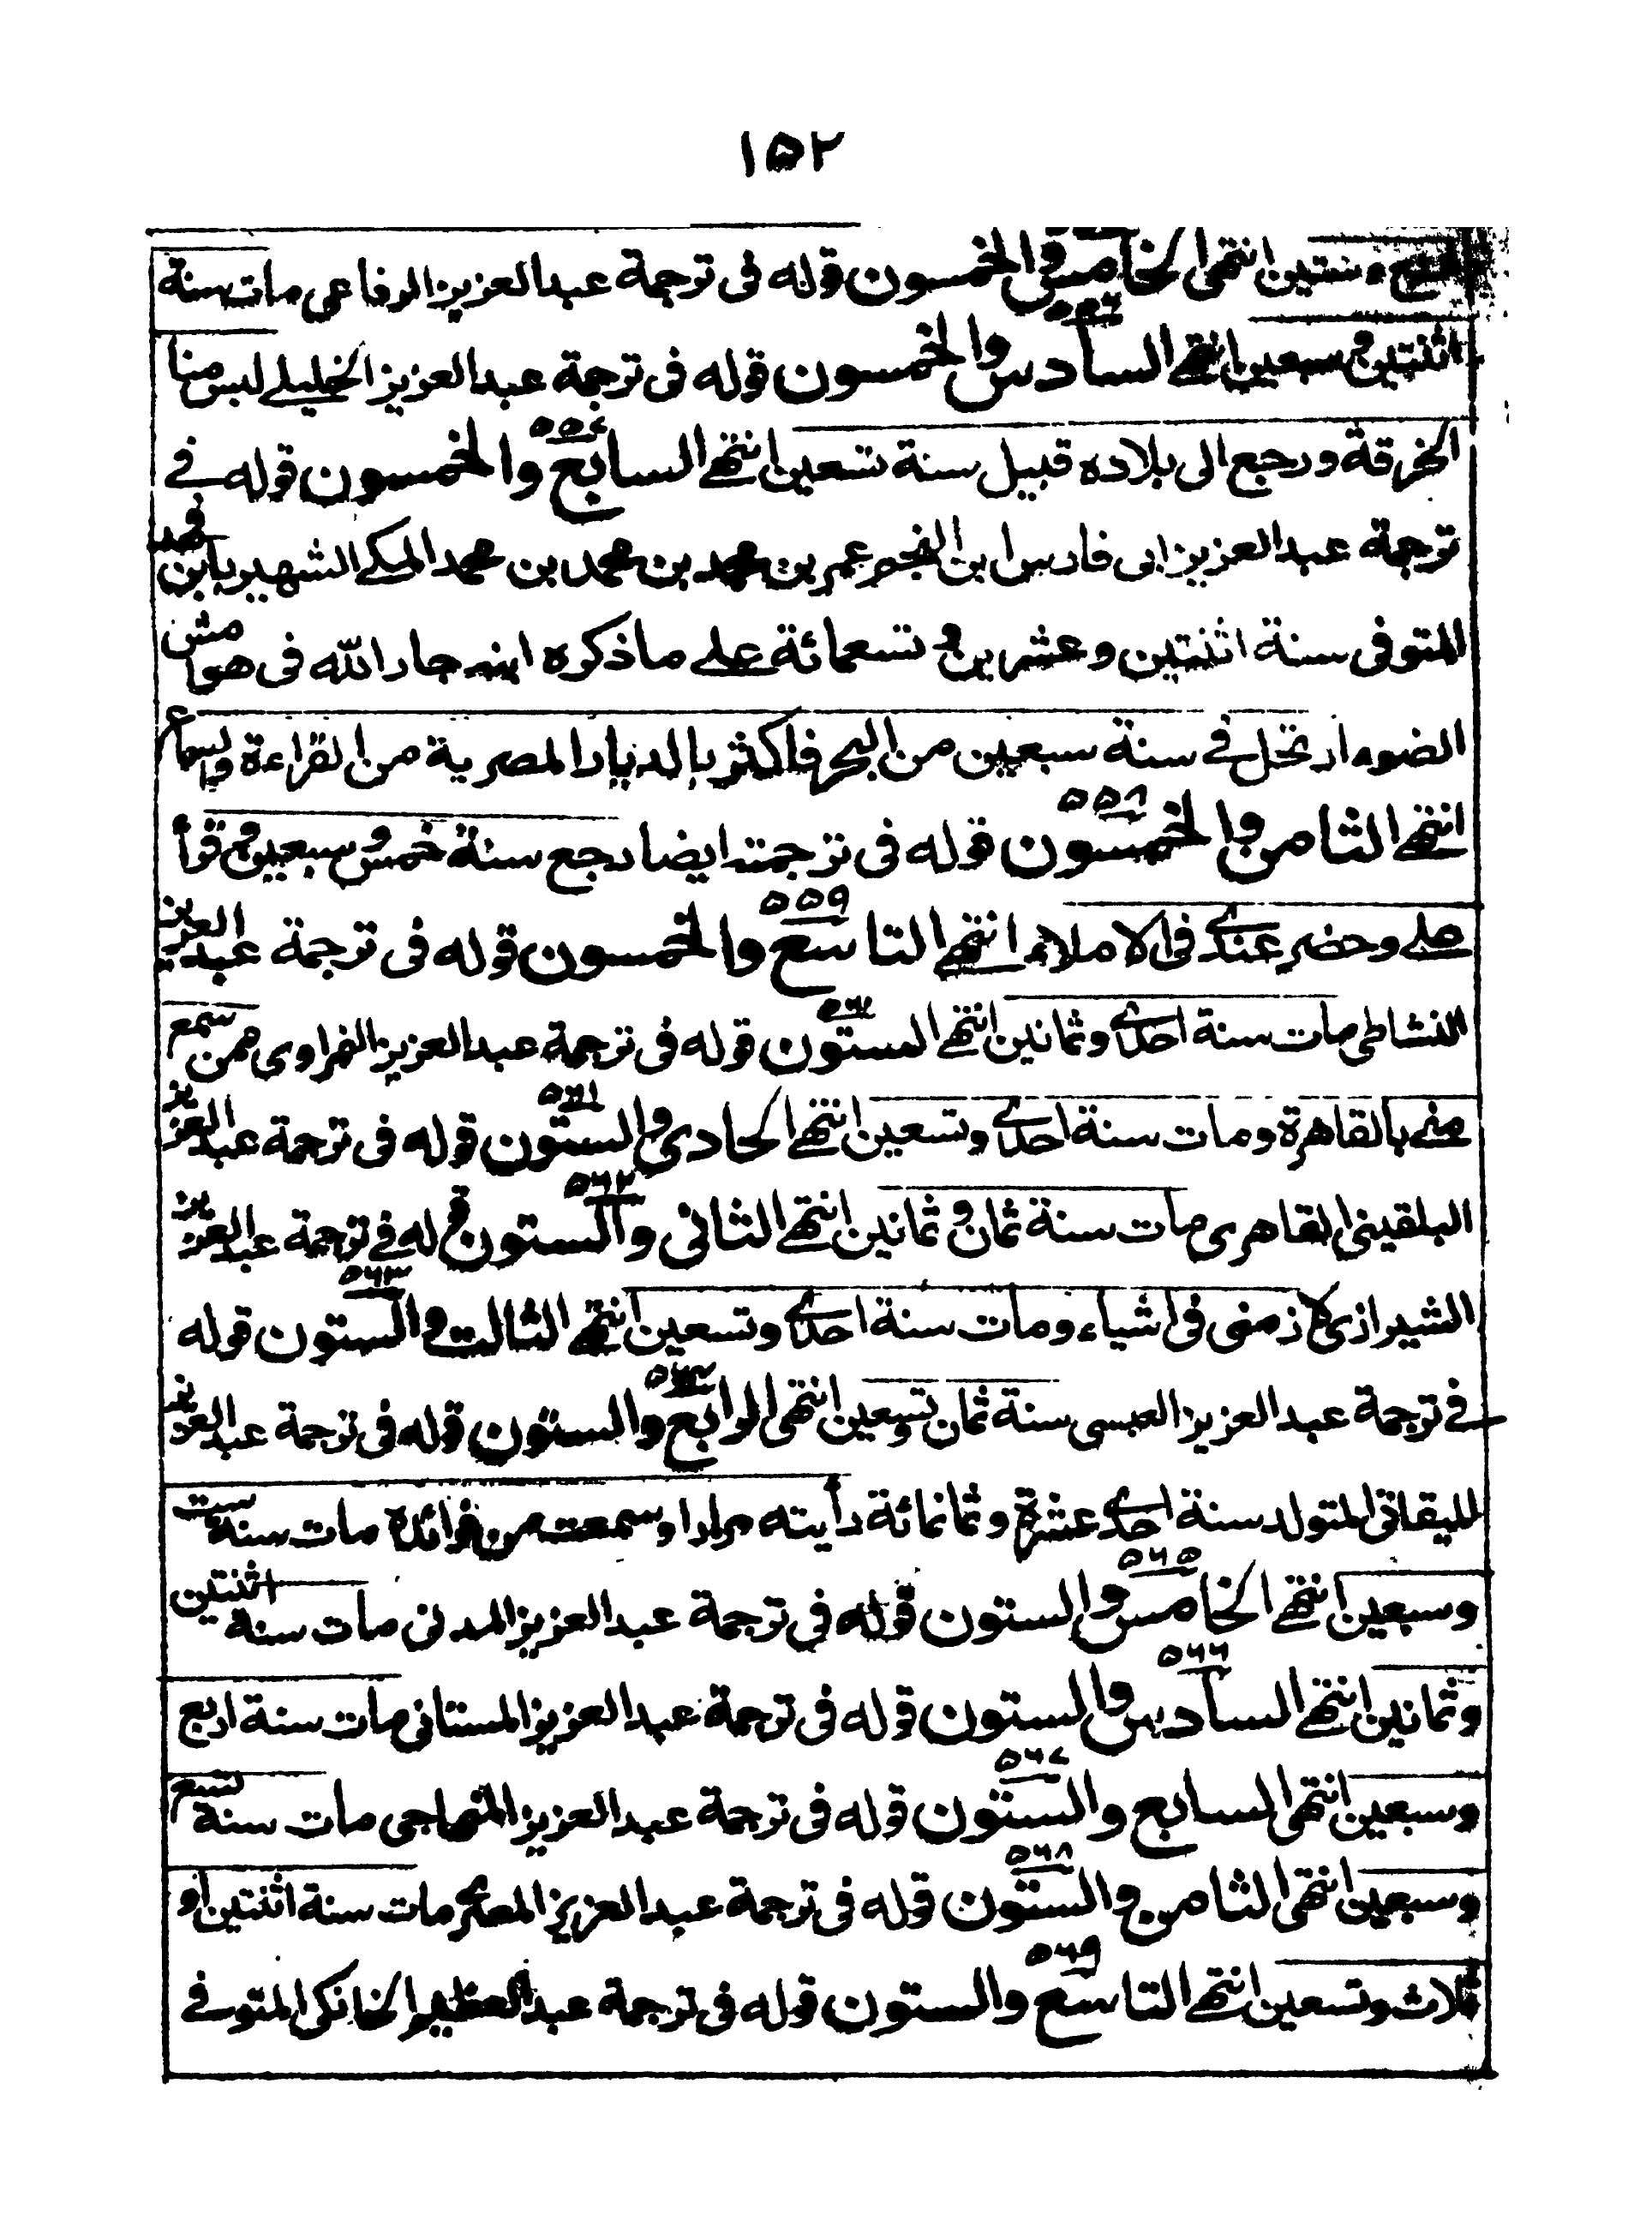 ١٥٢
وستين انتهى الخامس والخمسون قوله فى ترجمة عبدالعزيز الرفاعى مات سنة
٥٥٦
اثنتين وسبعين انتهى السادس والخمسون قوله فى ترجمة عبدالعزيز الخليلى لبس منا
٥٥٧
الخرقة ورجع الى بلاده قبيل سنة تسعين انتهى السابع والخمسون قوله فى
ترجمة عبدالعزيز ابى فارس ابن النجم عمر بن محمد بن محمد بن محمد المكى الشهير بابن فهد
المتوفى سنة اثنتين وعشرين و تسعمائة على ما ذكره ابنه جارالله فى هوامش
الضوء ارتحل فى سنة سبعين من البحر فاكثر بالديار المصرية من القراءة والسماع
٥٥٨
انتهى الثامن والخمسون قوله فى ترجمته ايضا رجع سنة خمس وسبعين وقرأ
٥٥٩
على وحضر عندى فى الاملاء انتهى التاسع والخمسون قوله فى ترجمة عبدالعزيز
٥٦٠
النشاطى مات سنة احدى وثمانين انتهى الستون قوله فى ترجمة عبدالعزيز الفراوى ممن سمع
٥٦١
منى بالقاهرة ومات سنة احدى وتسعين انتهى الحادى والستون قوله فى ترجمة عبدالعزيز
٥٦٢
البلقينى القاهرى مات سنة ثمان وثمانين انتهى الثانى والستون قوله فى ترجمة عبدالعزيز
٥٦٣
الشيرازى لازمنى فى اشياء ومات سنة احدى وتسعين انتهى الثالث والستون قوله
٥٦٤
فى ترجمة عبدالعزيز العبسى سنة ثمان وتسعين انتهى الرابع والستون قوله فى ترجمة عبدالعزيز
لليقاتى المتولد سنة احدى عشرة وثمانمائة رأيته مرارا وسمعت من فوائده مات سنة ست
٥٦٥
وسبعين انتهى الخامس والستون قوله فى ترجمة عبدالعزيز المدنى مات سنة اثنتين
٥٦٦
وثمانين انتهى السادس والستون قوله فى ترجمة عبدالعزيز المستانى مات سنة اربع
٥٦٧
وسبعين انتهى السابع والستون قوله فى ترجمة عبدالعزيز المنهاجى مات سنة تسع
٥٦٨
وسبعين انتهى الثامن والستون قوله فى ترجمة عبدالعزيز مات سنة اثنتين او
٥٦٩
ثلاث وتسعين انتهى التاسع والستون قوله فى ترجمة عبدالعظيم الخانكى المتوفى